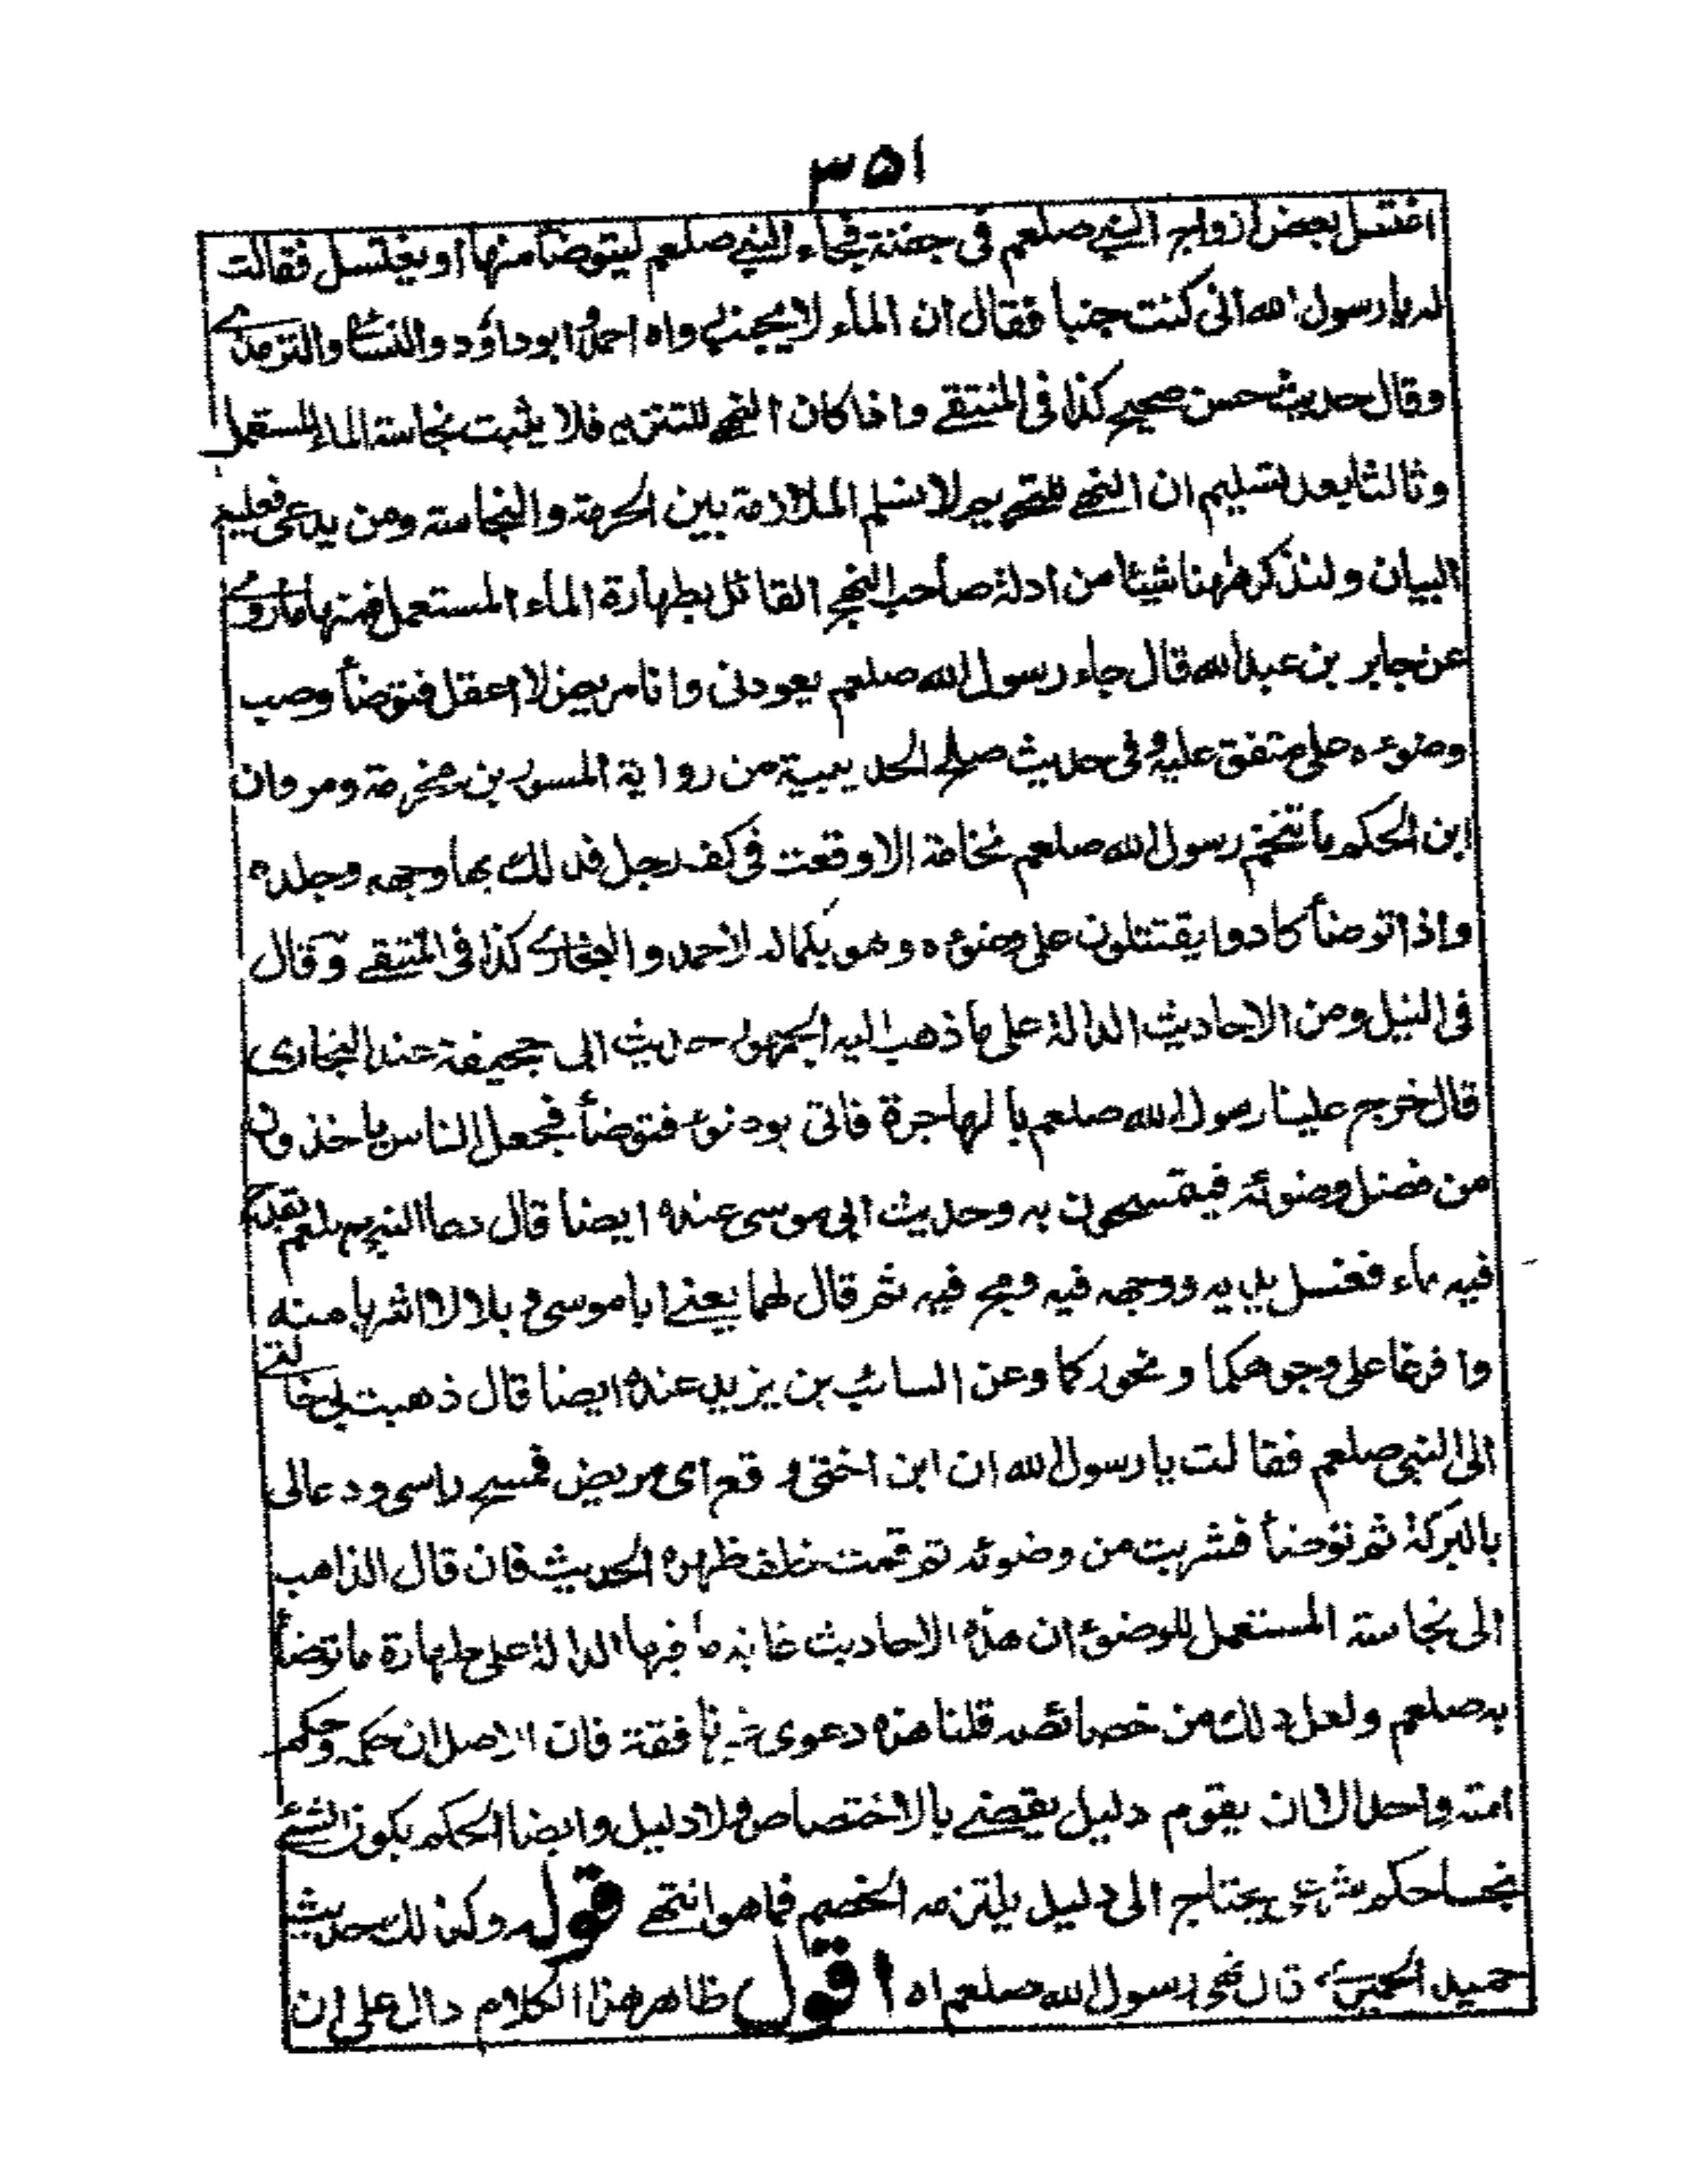 ٣٥١
اغتسل بعض ازواج النبي صلعم فى جفنة فجاء النبي صلعم ليتوضأ منها او يغتسل فقالت
له يا رسول الله انى كنت جنبا فقال ان الماء لا يجنب رواه احمد وابوداؤد والنسائى والترمذي
وقال حديث حسن صحيح كذا فى المنتقى واذا كان النهي للتنزيه فلا يثبت نجاسة الماء المستعمل
وثالثا بعد تسليم ان النهي للتحريم لا نسلم الملازمة بين الحرمة والنجاسة ومن يدعى فعليه
البيان ولنذكر ههنا شيئا من ادلة صاحب النهج القائل بطهارة الماء المستعمل فمنها ما روى
عن جابر بن عبد الله قال جاء رسول الله صلعم يعودنى وانا مريض لا اعقل فتوضأ وصب
وضوءه على متفق عليه وفى حديث صلح الحديبية من رواية المسور بن مخرمة ومروان
ابن الحكم ما تنخم رسول الله صلعم نخامة الا وقعت فى كف رجل فدلك بها وجهه وجلده
واذا توضأ كادوا يقتتلون على وضوءه وهو بكماله لاحمد والبخاري كذا فى المنتقى وقال
فى النيل ومن الاحاديث الدالة على ما ذهب اليه الجمهور حديث ابى جحيفة عند البخارى
قال خرج علينا رسول الله صلعم بالهاجرة فاتى بوضوء فتوضأ فجعل الناس ياخذون
من فضل وضوئه فيتمسحون به وحديث ابى موسى عنده ايضا قال دعا النبي صلعم بقدح
فيه ماء فغسل يديه ووجهه فيه ومج فيه ثم قال لهما يعنى ابا موسى وبلالا اشربا منه
وافرغا على وجوهكما ونحوركما وعن السائب بن يزيد عنده ايضا قال ذهبت بى خالتى
الى النبى صلعم فقالت يا رسول الله ان ابن اختى وقع اى مريض فمسح راسى ودعا لى
بالبركة ثم توضأ فشربت من وضوئه ثم قمت خلف ظهره الحديث فان قال الذاهب
الى نجاسة المستعمل للوضوء ان هذه الاحاديث غاية ما فيها الدالة على طهارة ما توضأ
به صلعم ولعل ذلك من خصائصه قلنا هذه دعوى غير نافقة فان الاصل ان حكمه وحكم
امته واحد الا ان يقوم دليل يقضى بالاختصاص ولا دليل وايضا الحكم بكون الشئ
نجسا حكم شرعى يحتاج الى دليل يلتزمه الخصم فما هو انتهى قوله وكذلك حديث
حميد الحميرى قال نهى رسول الله صلعم اه اقول ظاهر هذا الكلام دال على ان